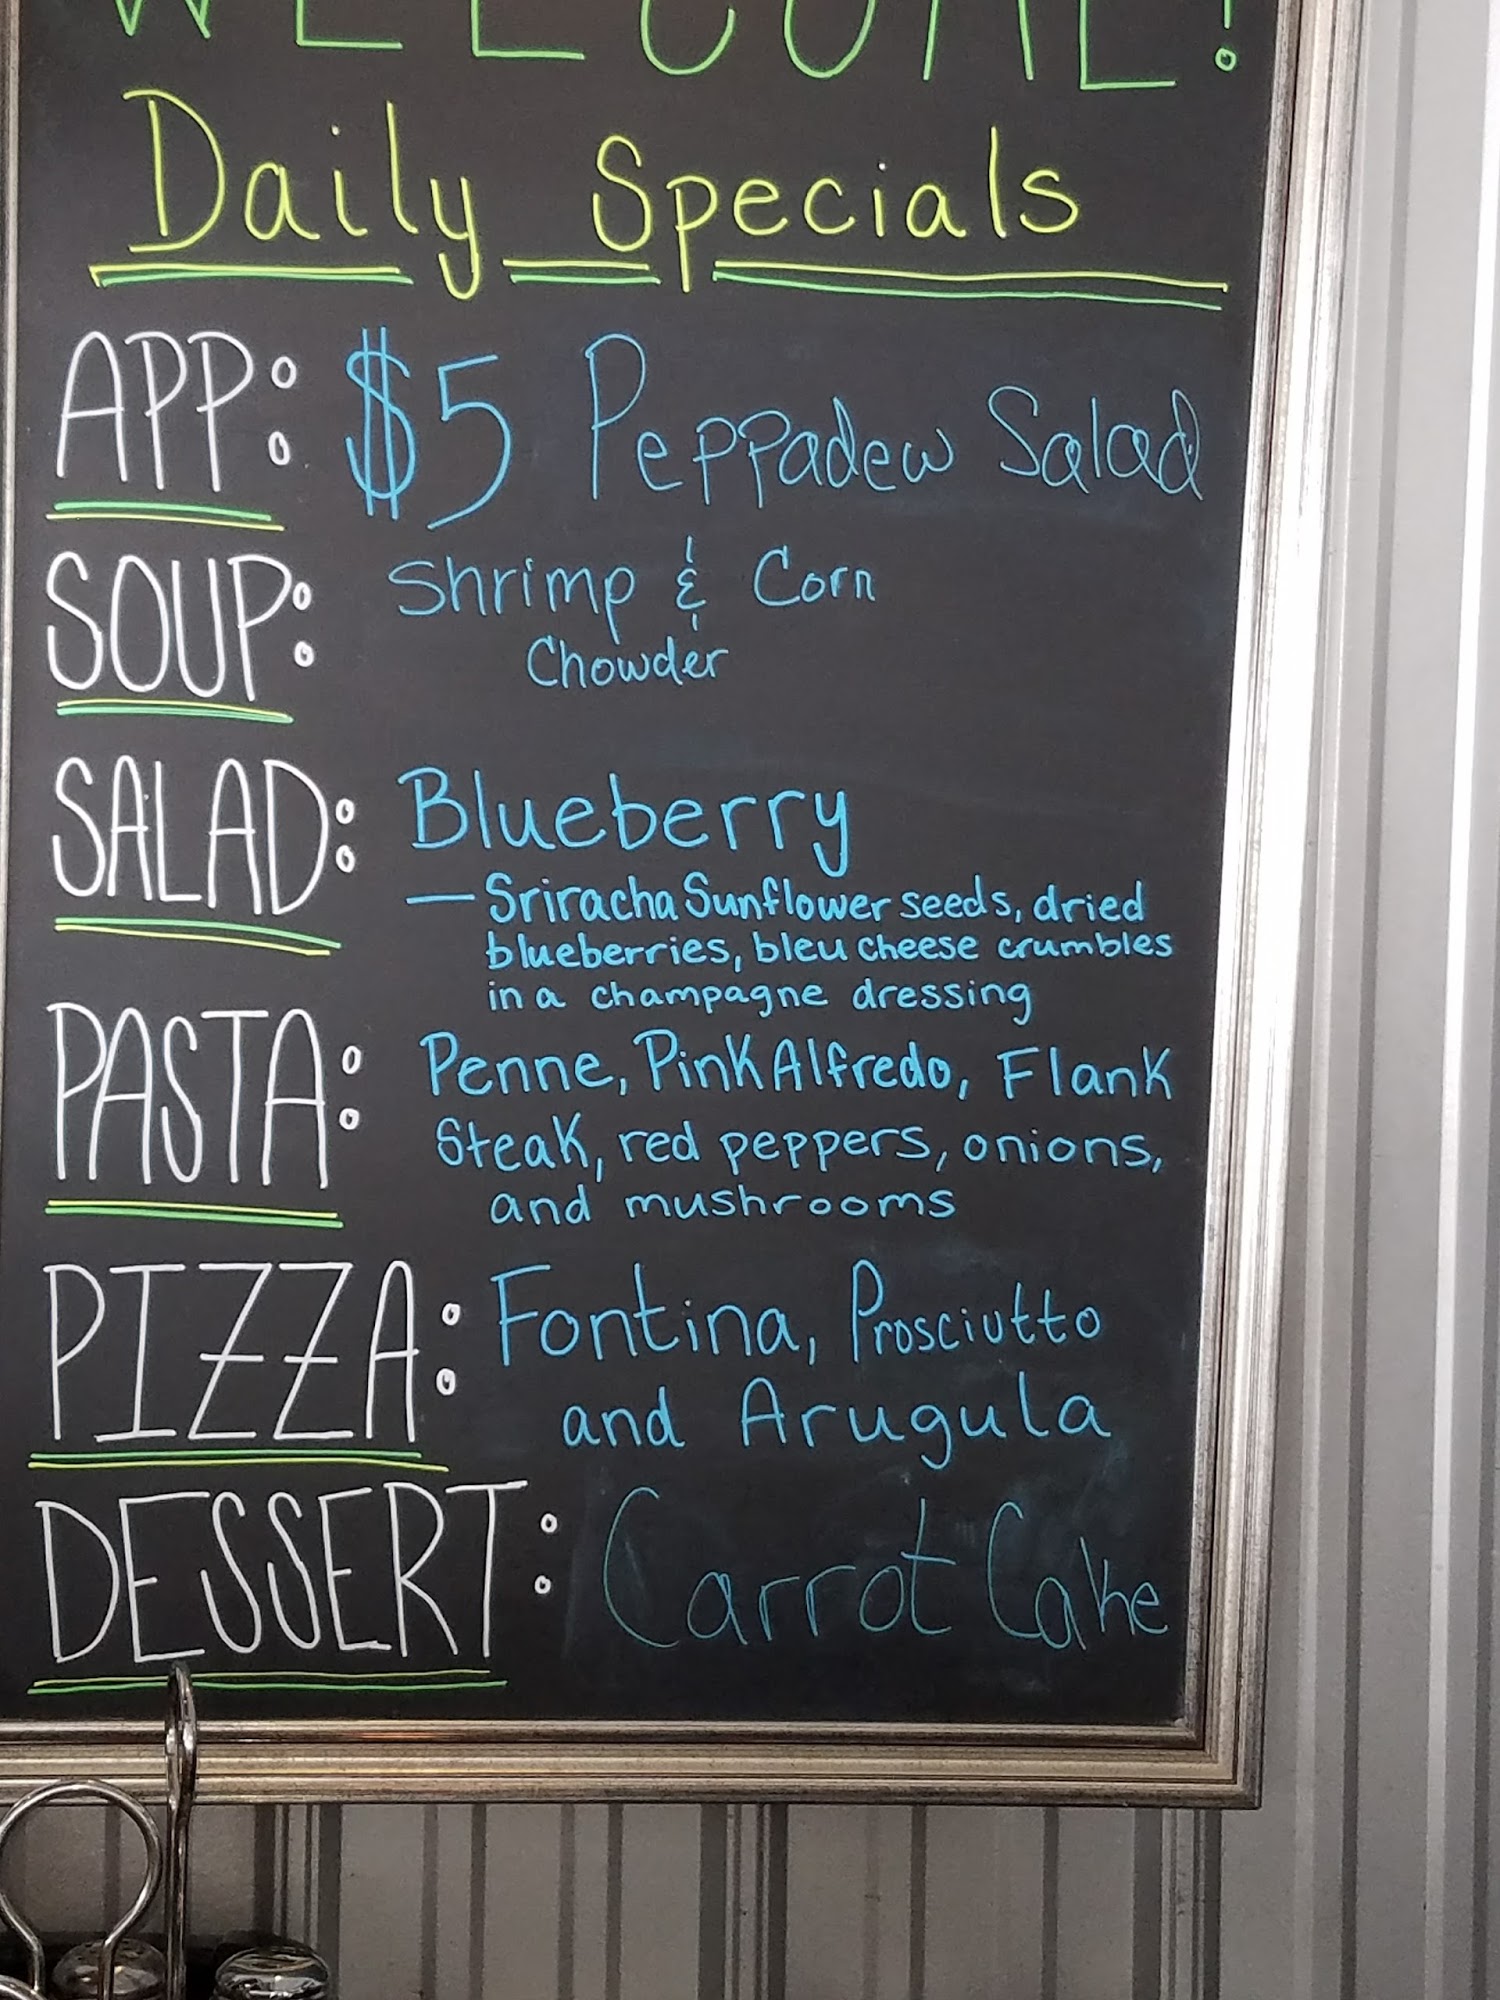 WELCOME!
Daily Specials
APP: $5 Peppadew Salad
SOUP: Shrimp & Corn
Chowder
SALAD: Blueberry
— Sriracha Sunflower seeds, dried
blueberries, bleu cheese crumbles
in a champagne dressing
PASTA: Penne, Pink Alfredo, Flank
Steak, red peppers, onions,
and mushrooms
PIZZA: Fontina, Prosciutto
and Arugula
DESSERT: Carrot Cake